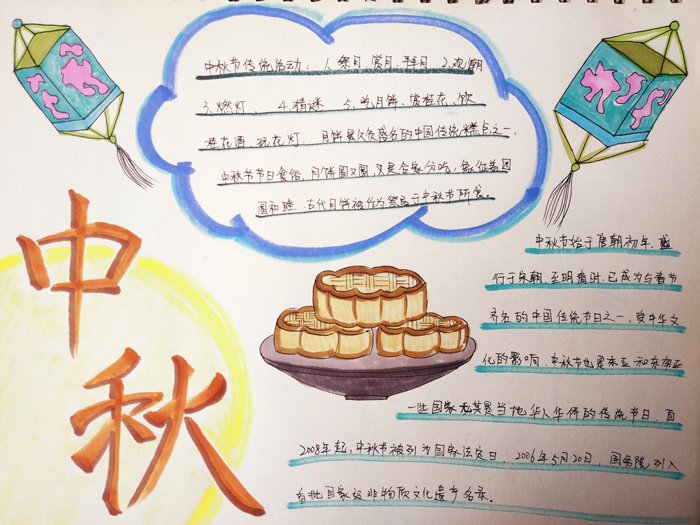 中秋节传统活动：1、祭月、赏月、拜月 2、观潮
3、燃灯、 4、猜谜 5、吃月饼、赏桂花、饮
桂花酒、玩花灯。月饼是久负盛名的中国传统糕点之一，
中秋节节日食俗。月饼圆又圆，又是合家分吃，象征着团
圆和睦。古代月饼被作为祭品于中秋节所食。
中秋节始于唐朝初年，盛
行于宋朝，至明清时，已成为与春节
齐名的中国传统节日之一，受中华文
化的影响，中秋节也是东亚和东南亚
一些国家尤其是当地华人华侨的传统节日。自
2008年起，中秋节被列为国家法定日。2006年5月20日，国务院列入
首批国家级非物质文化遗产名录。
中秋